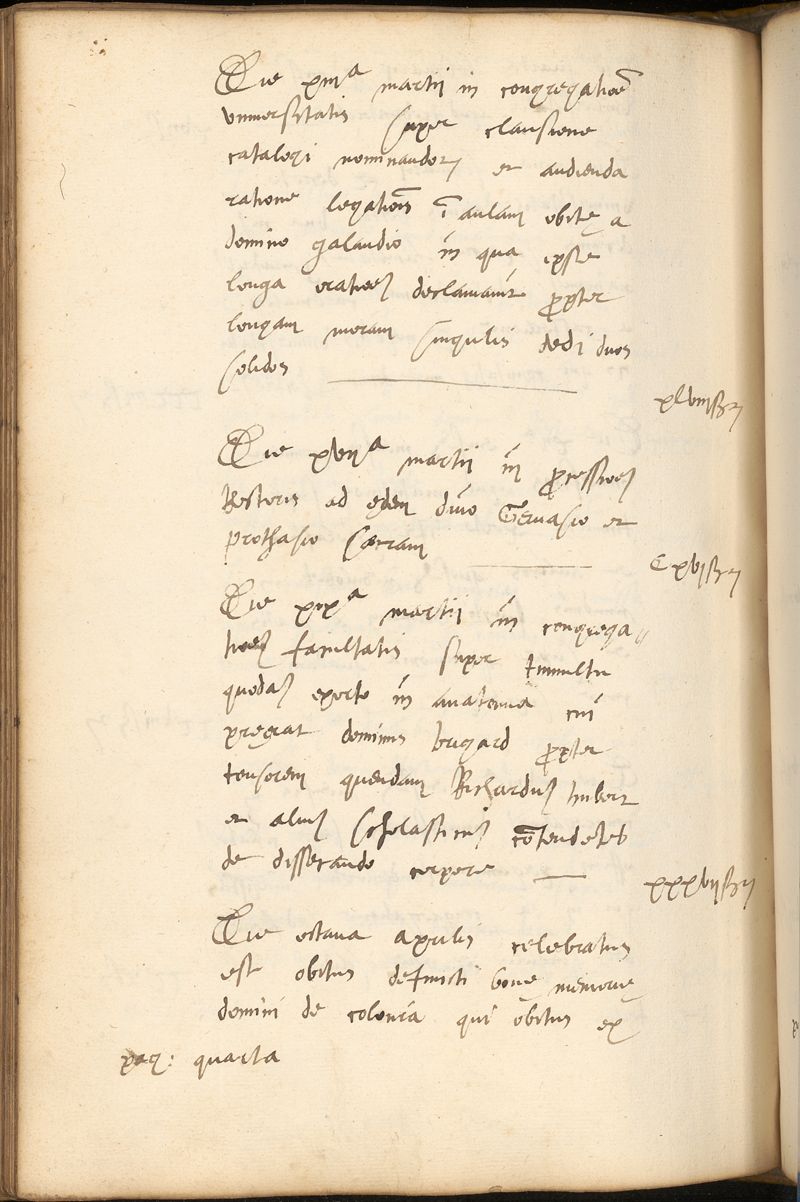 Die xiii^a martii in congregatioē
universitatis super clausione
catalogi nominandorȝ et audienda
ratione legatiōis ī aulam obitę a
domino galandio in qua ipse
longa oratioeȝ declamavit propter
longam moram singulis dedi duos
solidos
xlviii ß
Die xvii^a martii in processioeȝ
Rectoris ad ędem divo Gervasio et
prothasio sacram
C xvi ß
Die xix^a martii in congrega„
tioeȝ facultatis super tumultu
quodaȝ exorto in anatomia cui
preerat dominus brigard propter
tonsorem quendam Richarduȝ hubert
et aliuȝ scholasticuȝ cōtendētes
de disserando corpore
xxxvii ß
Die octava aprilis celebratus
est obitus defuncti bonę memorię
domini de colonia qui obitus ex
pag: quarta